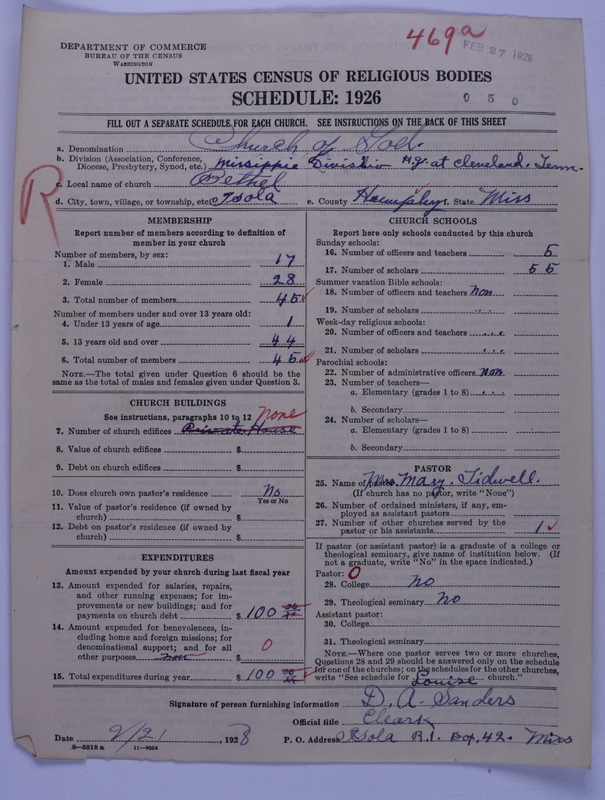 469a
FEB 27 1928
DEPARTMENT OF COMMERCE
BUREAU OF THE CENSUS
WASHINGTON
UNITED STATES CENSUS OF RELIGIOUS BODIES
SCHEDULE: 1926
0 5 0
FILL OUT A SEPARATE SCHEDULE FOR EACH CHURCH. SEE INSTRUCTIONS ON THE BACK OF THIS SHEET
R
a. Denomination Church of God.
b. Division (Association, Conference, Diocese, Presbytery, Synod, etc.) Missippie Divistio H.q. at Cleveland. Tenn.
c. Local name of church Bethel
d. City, town, village, or township, etc. Isola e. County Humphery f. State Miss
MEMBERSHIP
Report number of members according to definition of
member in your church
Number of members, by sex:
1. Male 17
2. Female 28
3. Total number of members 45 ✓
Number of members under and over 13 years old:
4. Under 13 years of age 1
5. 13 years old and over 44
6. Total number of members 45 ✓
NOTE.—The total given under Question 6 should be
same as the total of males and females given under Question 3.
CHURCH BUILDINGS
See instructions, paragraphs 10 to 12 none
7. Number of church edifices Private House
8. Value of church edifices $
9. Debt on church edifices $
10. Does church own pastor's residence No
Yes or No
11. Value of pastor's residence (if owned by
church) $
12. Debt on pastor's residence (if owned by
church) $
EXPENDITURES
Amount expended by your church during last fiscal year
13. Amount expended for salaries, repairs,
and other running expenses; for im-
provements or new buildings; and for
payments on church debt $ 100
14. Amount expended for benevolences, in-
cluding home and foreign missions; for
denominational support; and for all
other purposes none $ 0
15. Total expenditures during year $ 100
CHURCH SCHOOLS
Report here only schools conducted by this church
Sunday schools:
16. Number of officers and teachers 5
17. Number of scholars 55
Summer vacation Bible schools:
18. Number of officers and teachers non
19. Number of scholars
Week-day religious schools:
20. Number of officers and teachers
21. Number of scholars
Parochial schools:
22. Number of administrative officers non
23. Number of teachers—
a. Elementary (grades 1 to 8)
b. Secondary
24. Number of scholars—
a. Elementary (grades 1 to 8)
b. Secondary
PASTOR
25. Name of pastor Mrs. Mary. Tidwell.
(If church has no pastor, write "None")
26. Number of ordained ministers, if any, em-
ployed as assistant pastors
27. Number of other churches served by the
pastor or his assistants 1 ✓
If pastor (or assistant pastor) is a graduate of a college or
theological seminary, give name of institution below. (If
not a graduate, write "No" in the space indicated.)
Pastor: 0
28. College no
29. Theological seminary no
Assistant pastor:
30. College
31. Theological seminary
NOTE.—Where one pastor serves two or more churches,
Questions 28 and 29 should be answered only on the schedule
for one of the churches; on the schedules for the other churches,
write "See schedule for Louise church."
Signature of person furnishing information D. A. Sanders
Official title Cleark
Date 2/21, 1928 P. O. Address Isola R.1. Box, 42. Miss
8—5518 a 11—9034